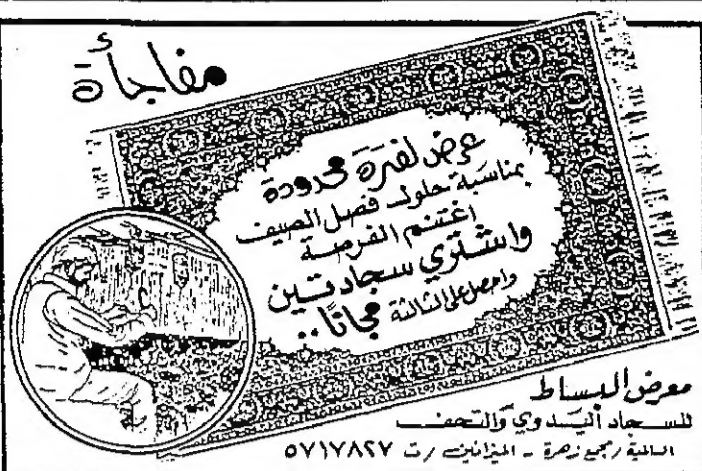 مفاجأة
عرض لفترة محدودة
بمناسبة حلول فصل الصيف
اغتنم الفرصة
واشتري سجادتين
واحصل على الثالثة مجاناً..
معرض البساط
للسجاد اليدوي والتحف
السالمية / مجمع زهرة - الميزانين / ت ٥٧١٧٨٢٧